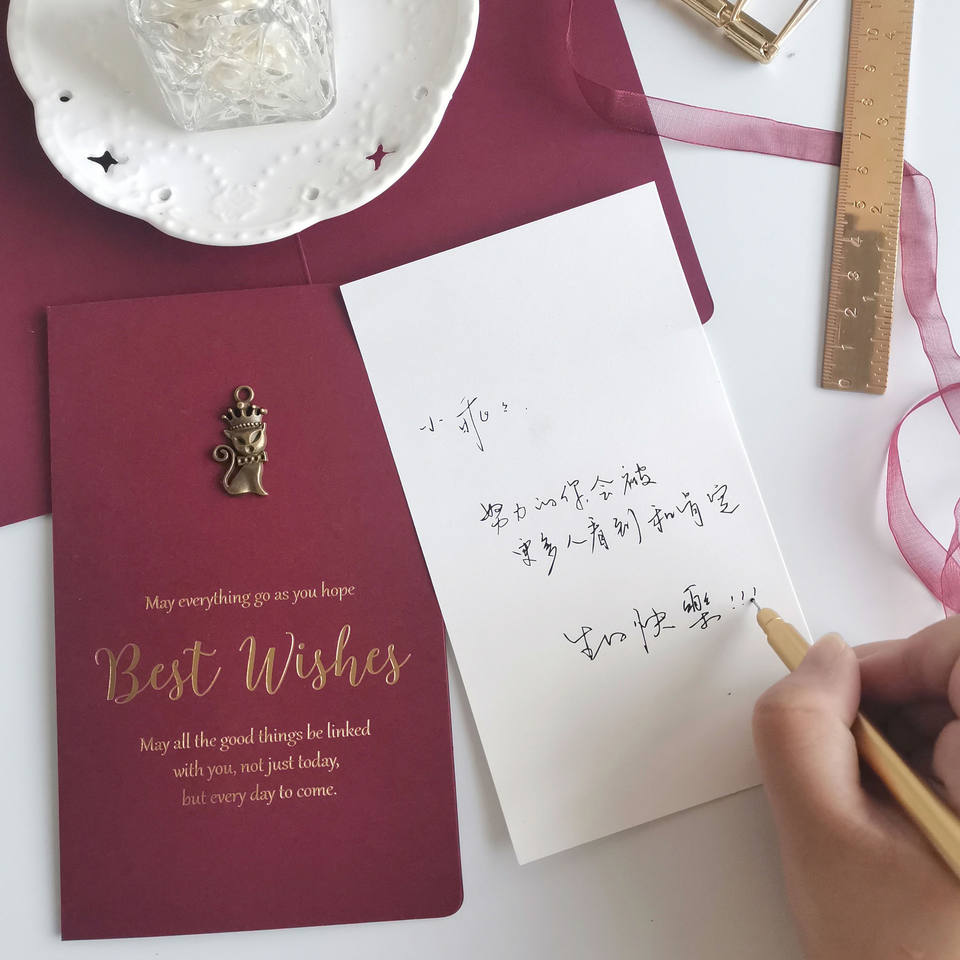 May everything go as you hope
Best Wishes
May all the good things be linked
with you, not just today,
but every day to come.
小乖:
努力的你会被
更多人看到和肯定
生日快樂!!!
0 1 2 3 4 5 6 7 8 9 10
1 2 3 4